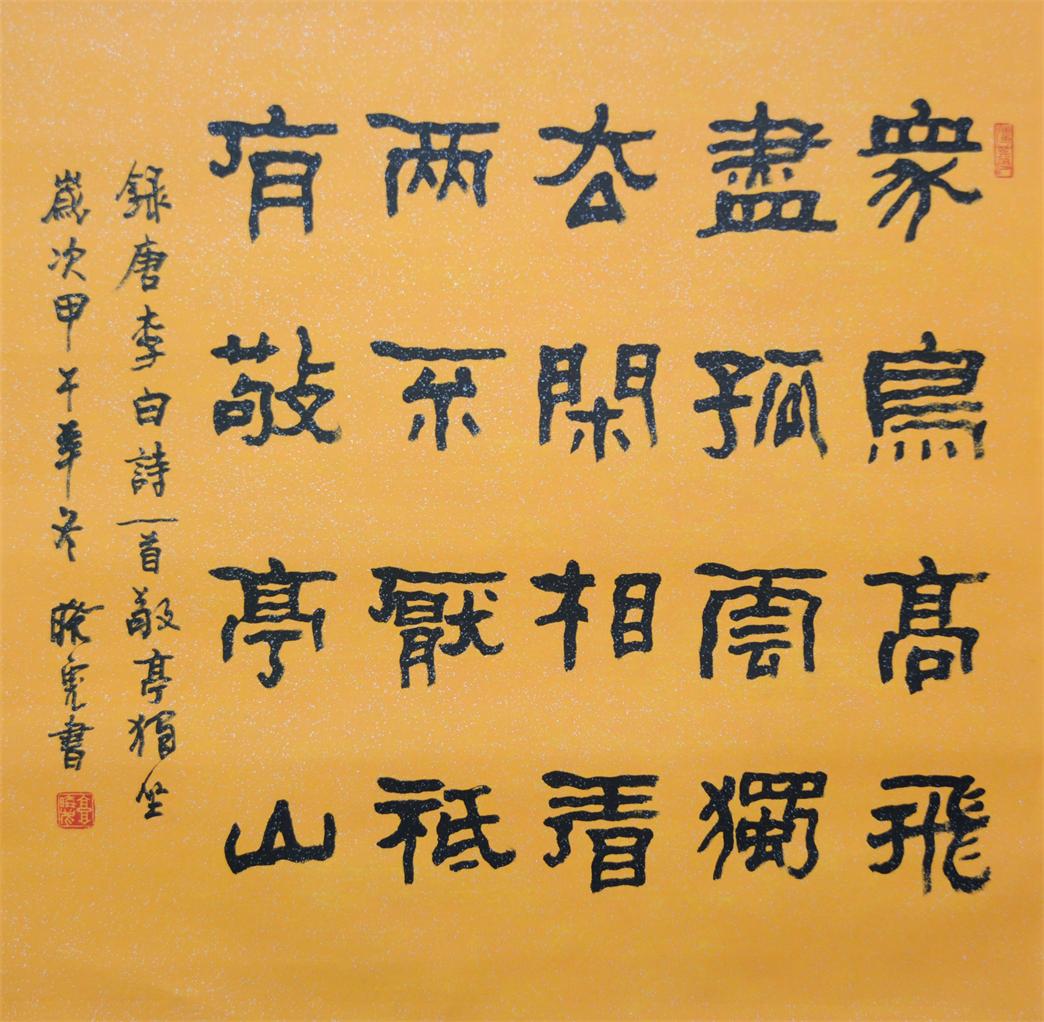 眾鳥高飛
盡孤雲獨
去閑相看
两不厭祗
有敬亭山
録唐李白詩一首敬亭獨坐
歲次甲午年冬 書